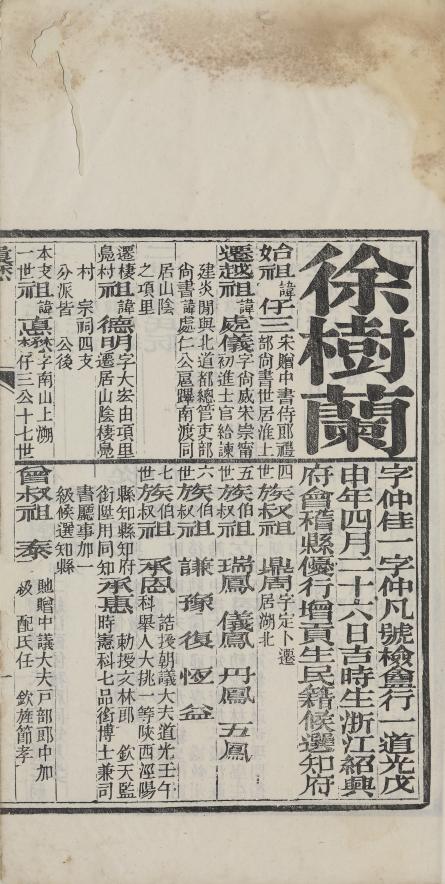 徐樹蘭
字仲佳一字仲凡號檢盦行一道光戊
申年四月二十六日吉時生浙江紹興
府會稽縣優行增貢生民籍候選知府
始祖 諱仁三 宋贈中書侍郎禮
部尚書世居淮土
遷越祖 諱處儀 字尚威宋崇甯
初進士官給諫
建炎閒與北道都總管吏部
尚書諱處仁公扈蹕南渡同
居山陰
之項里
遷棲鳧村祖 諱德明 字大宏由項里
遷居山陰棲鳧
村 宗祠四支
分派皆 公後
本支一世祖 諱 字南山上溯
仔三公十七世
四世族叔祖 鼎周 字定卜遷
居湖北
五世族伯叔祖 瑞鳳 儀鳳 丹鳳 五鳳
六世族伯叔祖 謙 豫 復 恆 益
七世族伯叔祖 承恩 誥授朝議大夫道光壬午
科舉人大挑一等陝西涇陽
縣知縣知府
銜陞用同知 承惠 勅授文林郎 欽天監
時憲科七品銜博士兼司
書廳事加一
級候選知縣
曾叔祖 泰 貤贈中議大夫戶部郎中加
級 配氏任 欽旌節孝